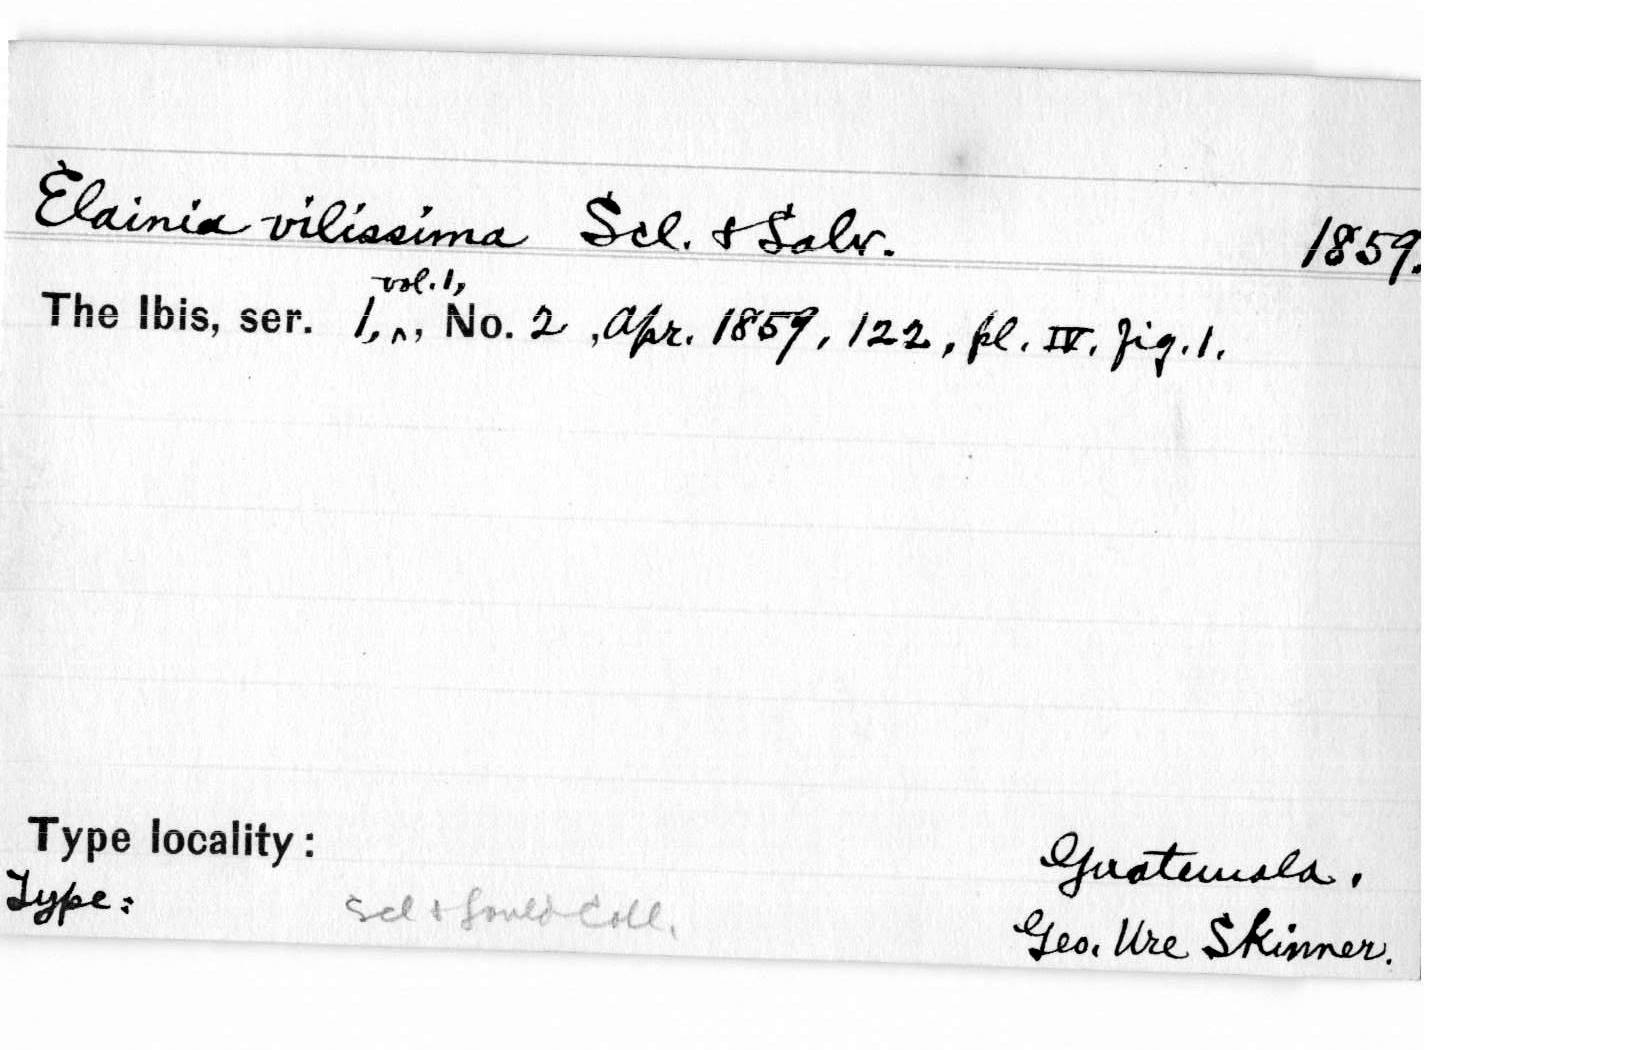 Elainia vilissima Scl. & Salv. 1859.
The Ibis, ser. 1, vol. 1, No. 2, Apr. 1859, 122, pl. IV. fig. 1.
Type locality: Guatemala.
Type: Scl & Gould Coll. Geo. Ure Skinner.